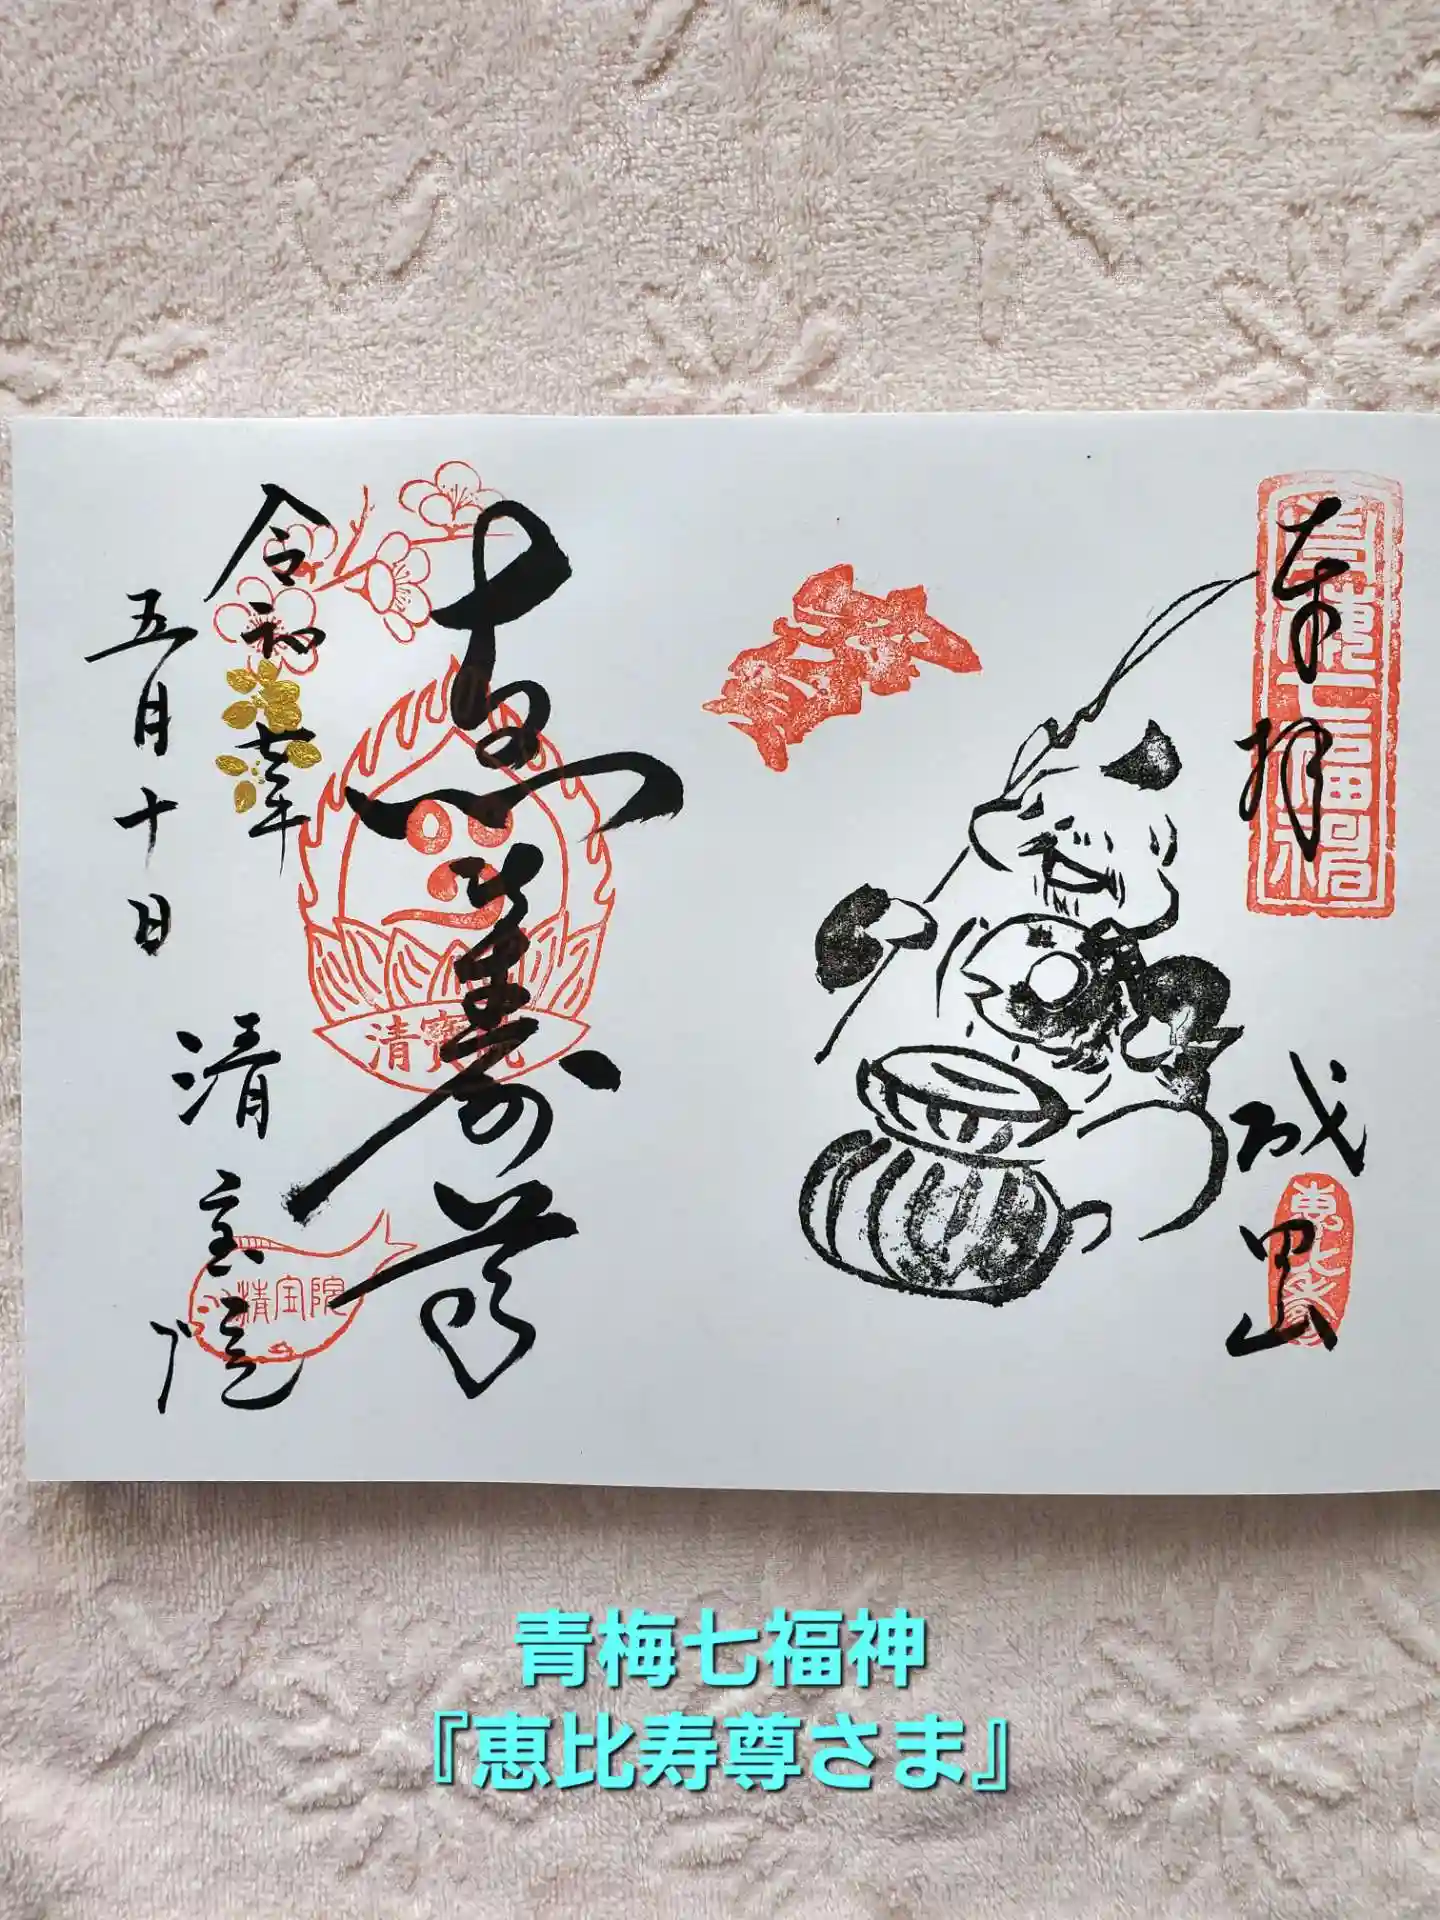 奉拝
青梅七福神
成田山
恵比寿
恵比寿尊
清寶院
令和七年
五月十日
清宝院
清宝院
青梅七福神
『恵比寿尊さま』